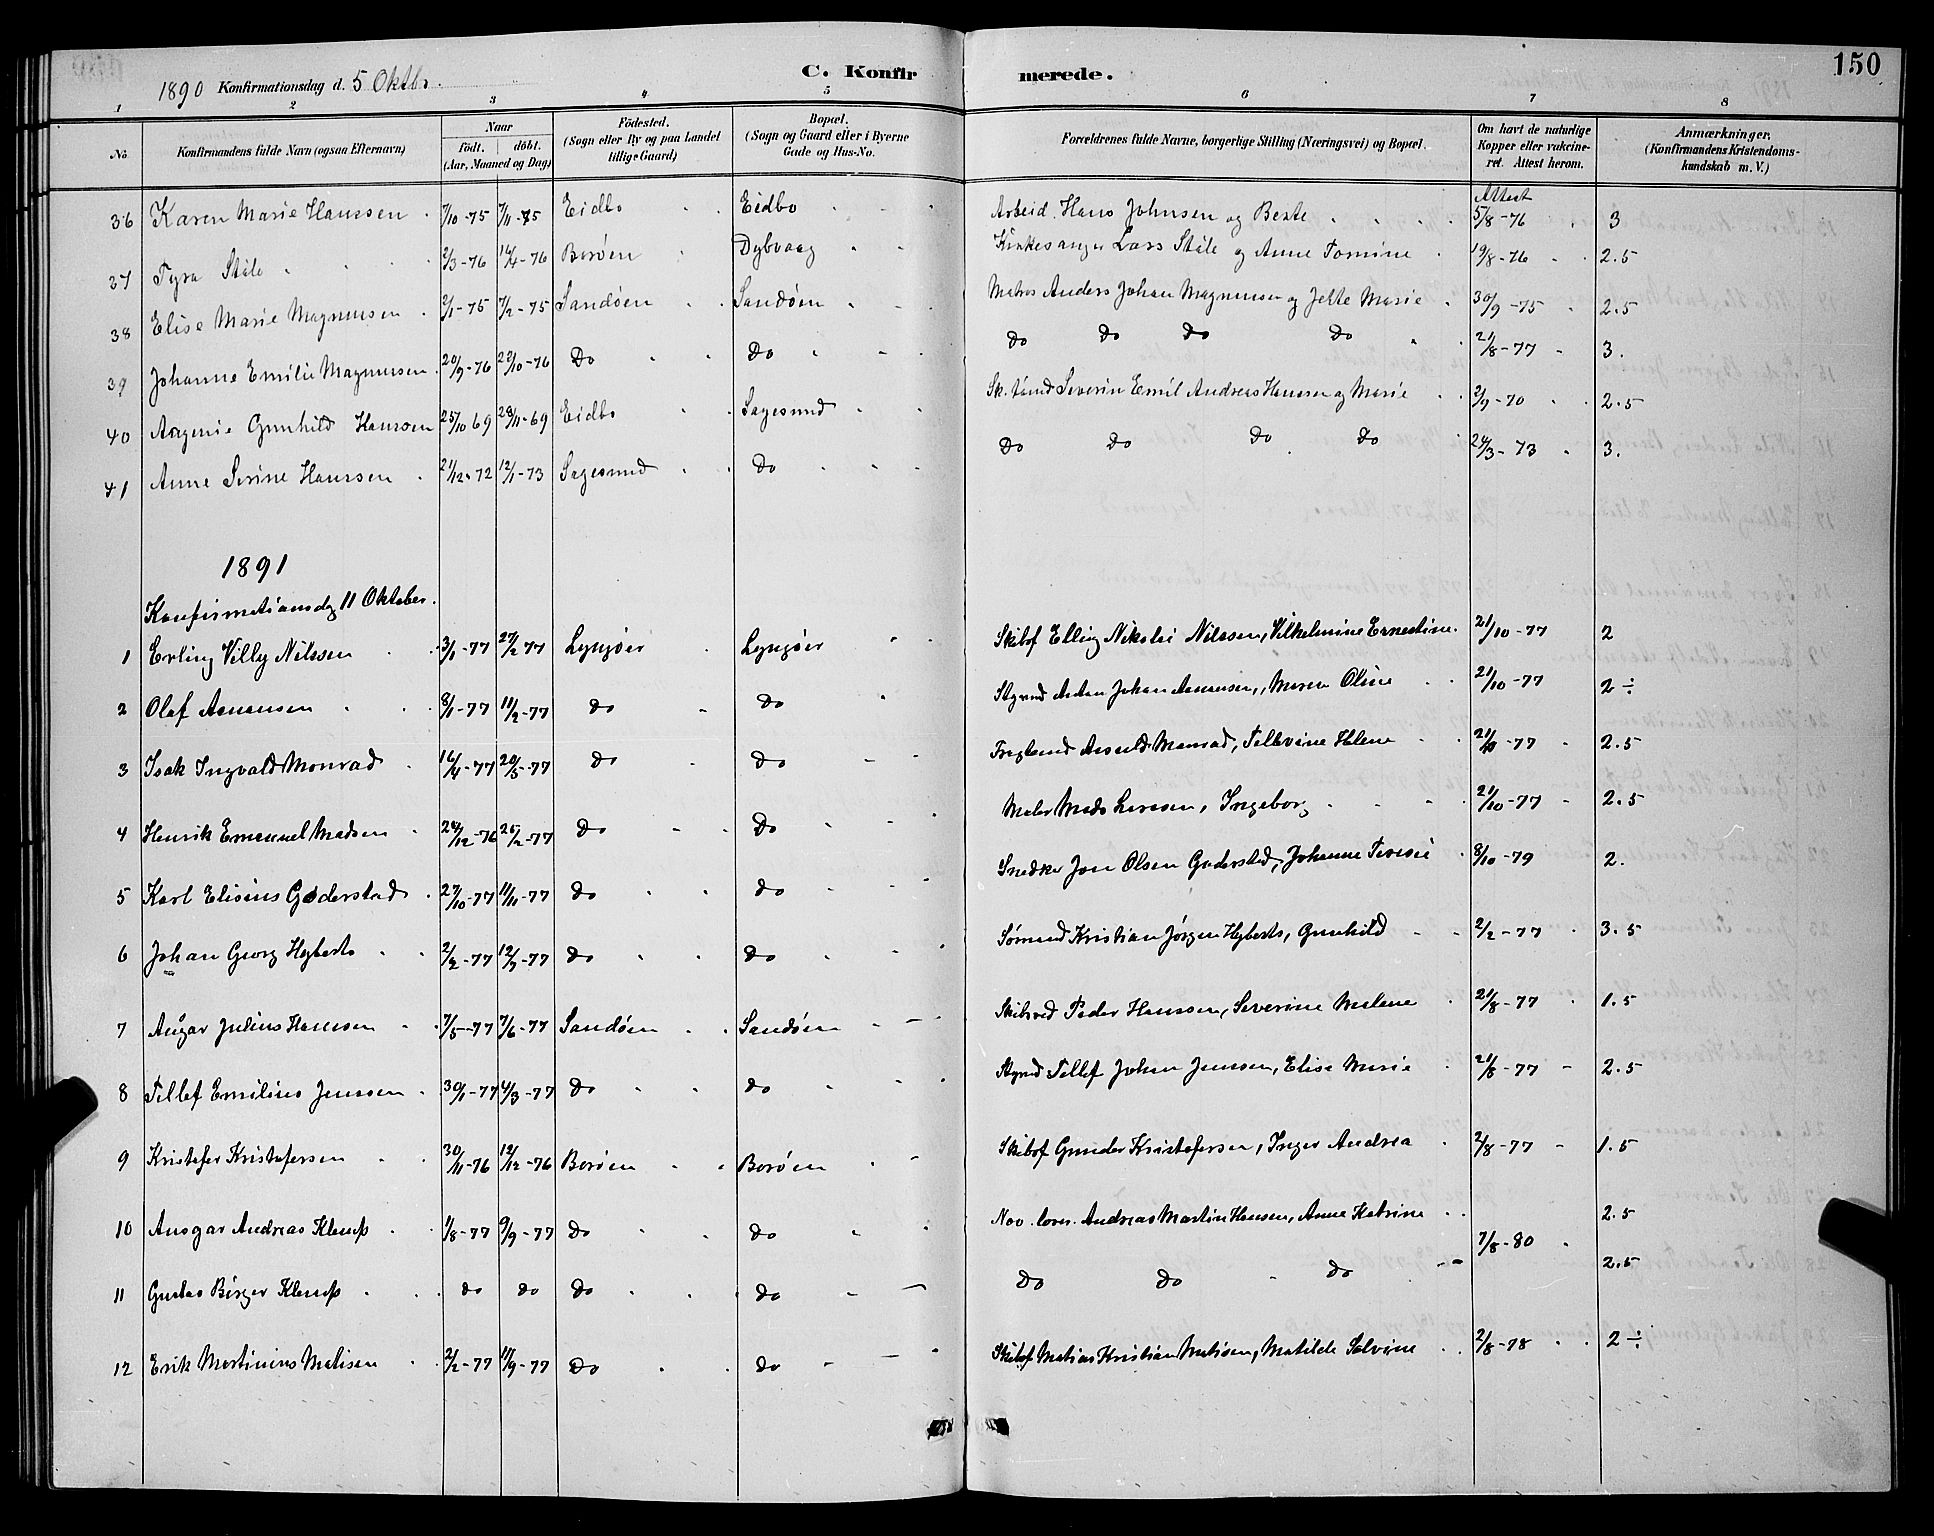 150
C. Konfirmerede.
1890 Konfirmationsdag d. 5 Oktbr.
1 2 3 4 5 6 7 8
No. Konfirmandens fulde Navn (ogsaa Efternavn) Naar födt. döbt. (Aar, Maaned og Dag) Födested. (Sogn eller By og paa Landet tillige Gaard) Bopæl. (Sogn og Gaard eller i Byerne Gade og Hus-No. Forældrenes fulde Navne, borgerlige Stilling (Næringsvei) og Bopæl. Om havt de naturlige Kopper eller vakcineret. Attest herom. Anmærkninger. (Konfirmandens Kristendomskundskab m. V.)
Attest
36 Karen Marie Hanssen 7/10-75 7/11-75 Eidbo Eidbo Arbeid. Hans Johnsen og Beate 5/8-76 3
37 Tyra Ståle 2/3-76 14/4-76 Borøen Dybvaag Kirkesanger Lars Ståle og Anne Tomine 19/8-76 2.5
38 Elise Marie Magnussen 2/1-75 7/2-75 Sandøen Sandøen Matros Anders Johan Magnussen og Jette Marie 30/9-75 2.5
39 Johanne Emilie Magnussen 20/9-76 22/10-76 Do Do Do Do Do Do 21/8-77 3.
40 Aagenie Gunhild Hanssen 25/10 69 28/11-69 Eidbo Sagesund Sk.tømd Severin Emil Andreas Hanssen og Marie 2/9-70 2.5
41 Anne Serine Hanssen 21/12-72 12/1-73 Sagesund Do Do Do Do Do 24/3-73 3.
1891
Konfirmationsdg 11 Oktober.
1 Erling Villy Nilssen 3/1-77 27/2 77 Lyngøer Lyngøer Skibsf Elling Nikolai Nilssen, Vilhelmine Ernestine 21/10-77 2
2 Olaf Aanonsen 8/1-77 11/2-77 Do Do Stymd Anton Johan Aanonsen, Maren Oline 21/10-77 2÷
3 Isak Ingvald Monrad 16/4-77 20/5-77 Do Do Arnold Monrad, Tellevine Helene 21/10-77 2.5
4 Henrik Emanuel Madsen 24/12-76 25/2-77 Do Do Maler Mads Larssen, Ingeborg 21/10-77 2.5
5 Karl Elisius Goderstad 27/10-77 11/11-77 Do Do Snedker Jon Olsen Goderstad, Johanne Teresie 8/10-79 2.
6 Johan Georg Hyberts 2/2-77 12/7-77 Do Do Sømand Kristian Jørgen Hyberts, Gunhild 2/2-77 3.5
7 Ansgar Julius Hanssen 7/5-77 7/6-77 Sandøen Sandøen Peder Hanssen, Severine Malene 21/8-77 1.5
8 Tellef Emilius Jenssen 30/1-77 4/3-77 Do Do Stymd Tellef Johan Jenssen, Elise Marie 21/8-77 2.5
9 Kristofer Kristofersen 30/11-76 12/12-76 Borøen Borøen Skibsf Gunder Kristofersen, Inger Andrea 2/8-77 1.5
10 Ansgar Andreas Klemp 1/8-77 9/9-77 Do Do Andreas Martin Hansen, Anne Katrine 7/8-80 2.5
11 Gustav Birger Klemp do do Do Do Do Do Do 2.5
12 Erik Martinius Matisen 2/2-77 11/9-77 Do Do Skibsf Matias Kristian Matisen, Matilde Salvine 2/8-78 2÷